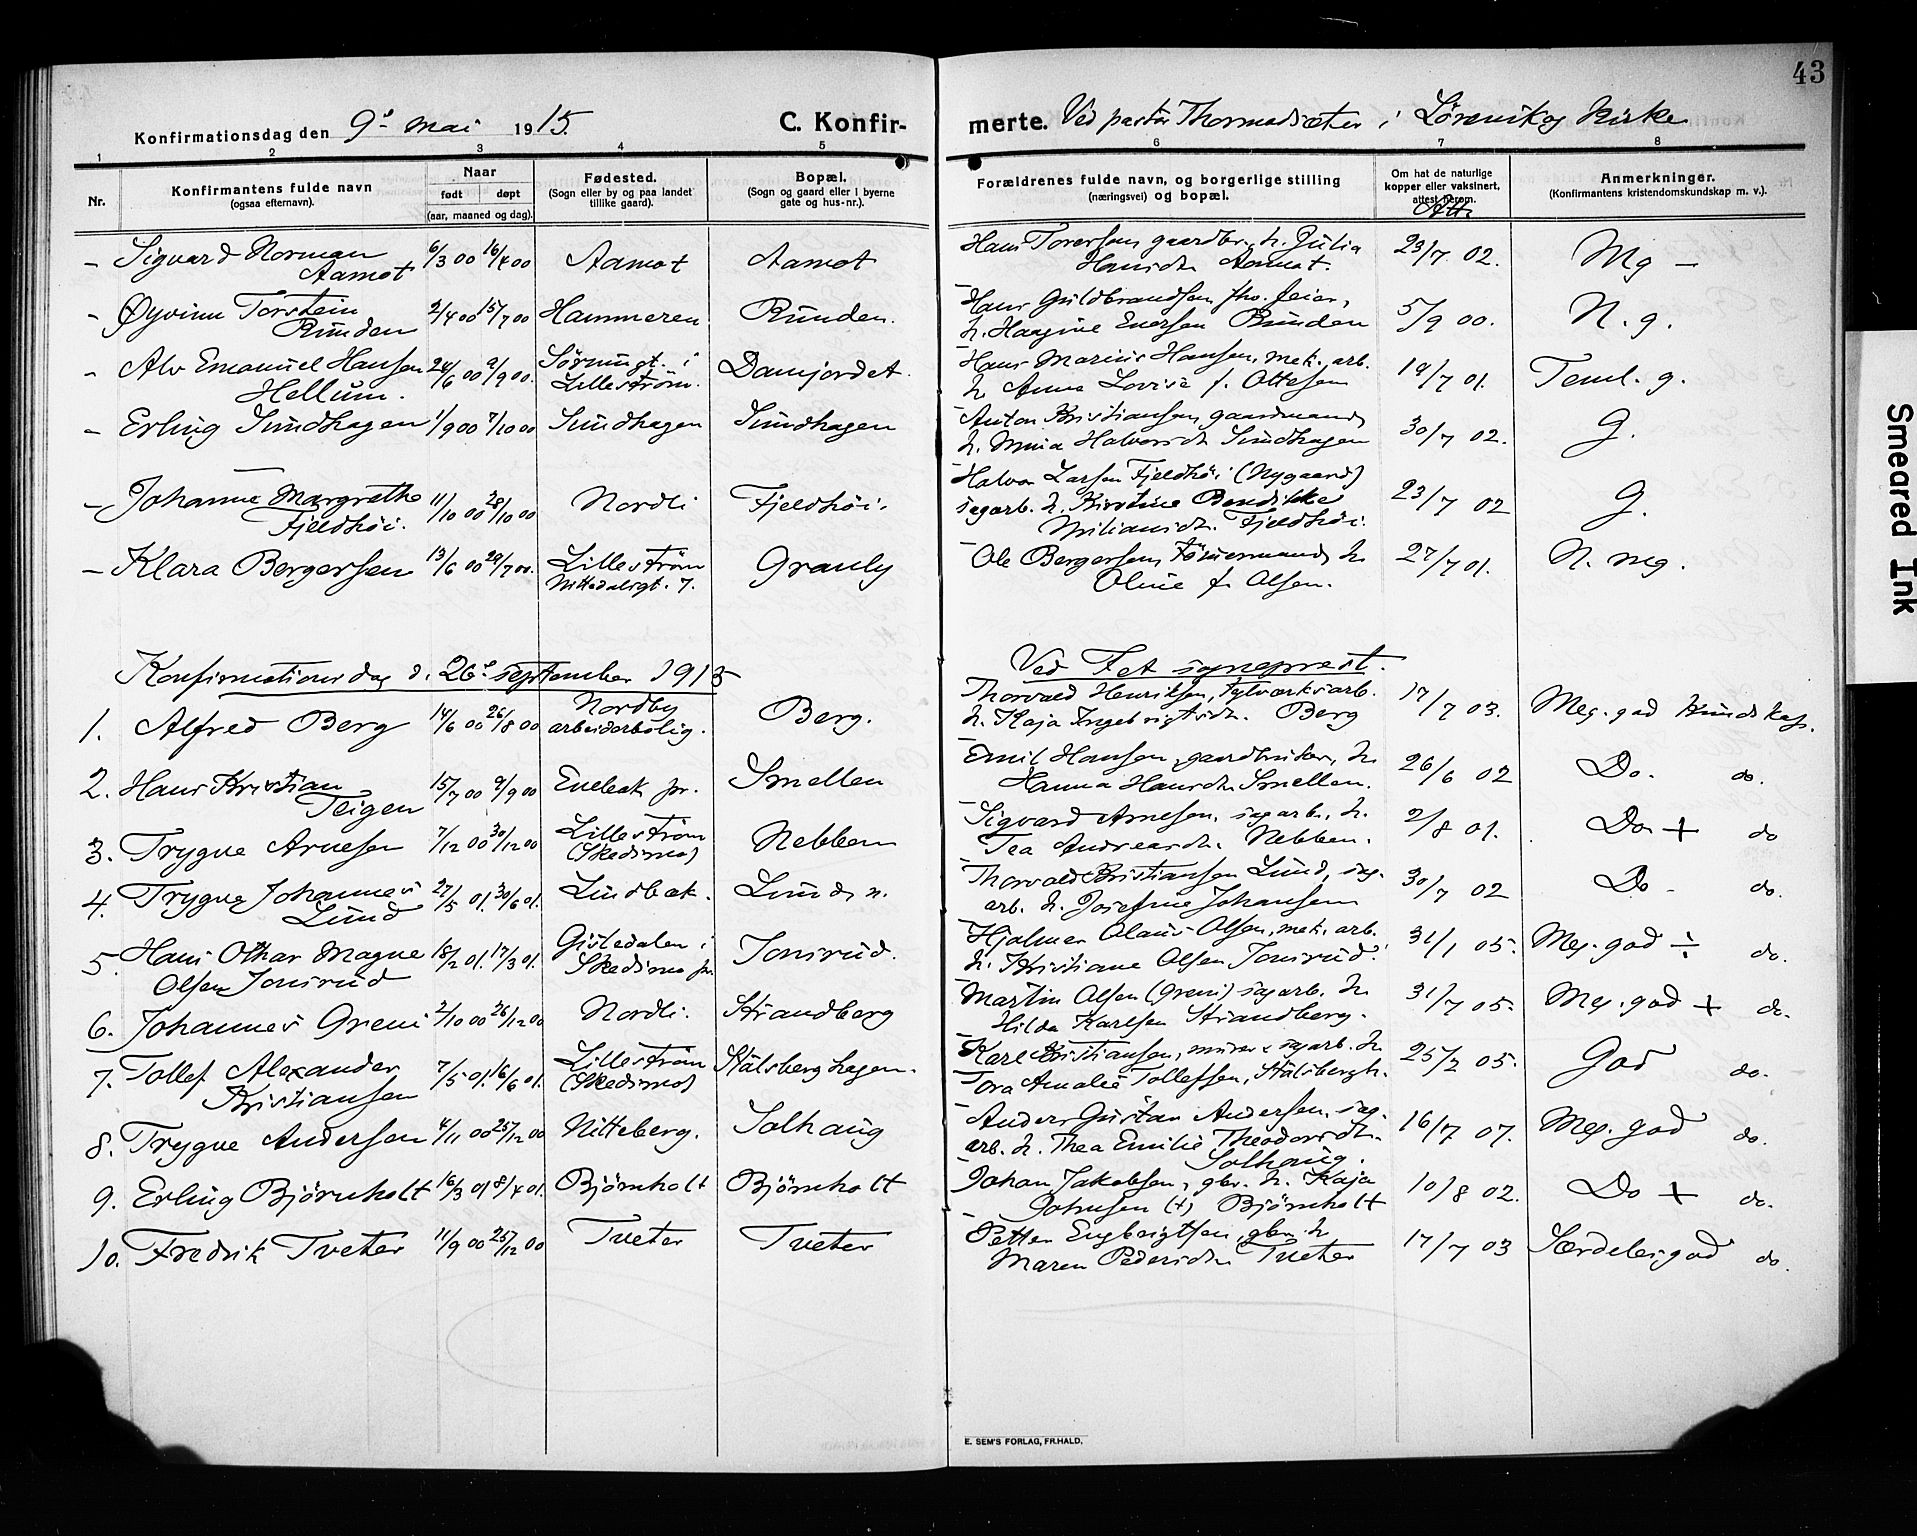 43
Konfirmationsdag den 9de mai 1915. C. Konfirmerte. Ved pastor Thormodsæter i Lørenskog kirke
1 2 3 4 5 6 7 8
Nr. Konfirmantens fulde navn (ogsaa efternavn). Naar født døpt (aar, maaned og dag). Fødested. (Sogn eller by og paa landet tillike gaard). Bopæl. (Sogn og gaard eller i byerne gate og hus-nr.). Forældrenes fulde navn, og borgerlige stilling (næringsvei) og bopæl. Om hat de naturlige kopper eller vaksinert, attest herom. Anmerkninger. (Konfirmantens kristendomskundskap m. v.).
Att.
- Sigvard Norman Aamot 6/3 00 16/4 00 Aamot Aamot Hans Torersen gaardbr. h. Julia Hansdtr. Aamot. 23/7 02. Mg -
- Øyvinn Torstein Runden 2/4 00 15/7 00 Hammeren Runden. Hans Guldbrandsen fho. feier, h. Haagine Enersen Runden 5/9 00. N. g.
- Alv Emanuel Hansen Hellum. 24/6 00 2/9 00. i Lillestrøm. Damjordet. Hans Marius Hansen, mek. arb. h. Anna Lovise f. Ottesen 19/7 01. Teml. g.
- Erling Sundhagen 1/9 00 7/10 00 Sundhagen Sundhagen Anton Kristiansen, gaardmand, h. Mina Halvorsdtr Sundhagen 30/7 02. G.
- Johanne Margrethe Fjeldhöi. 11/10 00 28/10 00 Nordli Fjeldhöi. Halvor Larsen Fjeldhöi (Nygaard) sagarb. h. Kirstine Bendikke Miliansdtr. Fjeldhöi. 23/7 02 G.
- Klara Bergersen 13/6 00 29/7 00. Lillestrøm Nittedalsgt. 7. Granly Ole Bergersen, Tömmermand, h Oline f. Olsen. 27/7 01. N. mg.
Konfirmationsdag d. 26de september 1915 Ved Fet sogneprest.
1. Alfred Berg 14/6 00 26/8 00 Nordby arbeiderbolig. Berg. Thorvald Henriksen, tylværksarb. h. Kaja Ingebrigtsdtr. Berg 17/7 03. Meg. god kundskap.
2. Hans Kristian Teigen 15/7 00 9/9 00 Enebak pr. Smellen Emil Hansen, gaardbruker, h Hanna Hansdtr Smellen. 26/6 02 Do. do.
3. Trygve Arnesen 7/12 00 30/12 00 Lillestrøm (Skedsmo) Nebben Sigvard Arnesen, sagarb. h. Tea Andreasdtr. Nebben. 2/8 01. Do + do
4. Trygve Johannes Lund 27/5 01. 30/6 01. Lundbæk. Lund n. Thorvald Kristiansen Lund, sagarb. h. Josefine Johansen 30/7 02 Do - do.
5. Hans Othar Magne Olsen Jonsrud 18/2 01. 17/3 01. Gistedalen i Skedsmo pr. Jonsrud. Hjalmer Olaus Olsen, mek. arb. h. Kristiane Olsen Jonsrud. 31/1 05. Meg. god ÷ do.
6. Johannes Greni 2/10 00 26/12 00 Nordli. Strandberg Martin Olsen (Greni) sagarb. h Hilda Karlsen Strandberg. 31/7 05. Meg. god + do.
7. Tollef Alexander Kristiansen 7/5 01. 16/6 01. Lillestrøm (Skedsmo) Stålsberghagen. Karl Kristiansen, murer & sagarb. h Tora Amalie Tollefsen, Stålsbergh. 25/7 05. God do.
8. Trygve Andersen 4/11 00 25/12 00 Nitteberg. Solhaug Anders Gustav Andersen, sagarb. h. Thea Emilie Theodorsdtr. Solhaug. 16/7 07. Meg. god do.
9. Erling Björnholt 16/3 01 8/4 01. Björnholt Björnholt Johan Jakobsen, gbr. h. Kaja Johnsen (+) Björnholt 10/8 02. Do + do.
10. Fredrik Tveter 11/9 00 25/12 00 Tveter Tveter Petter Engbrigtsen, gbr. h Maren Pedersdtr Tveter 17/7 03 Særdeles god do.
E. SEM'S FORLAG, FR.HALD.
Smeared Ink